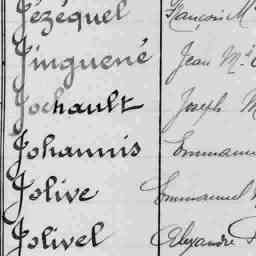 Jézéquel François M
Jinguené Jean M.
Jochault Joseph M
Johannis Emmanue
Jolive Emmanuel
Jolivel Alexandre